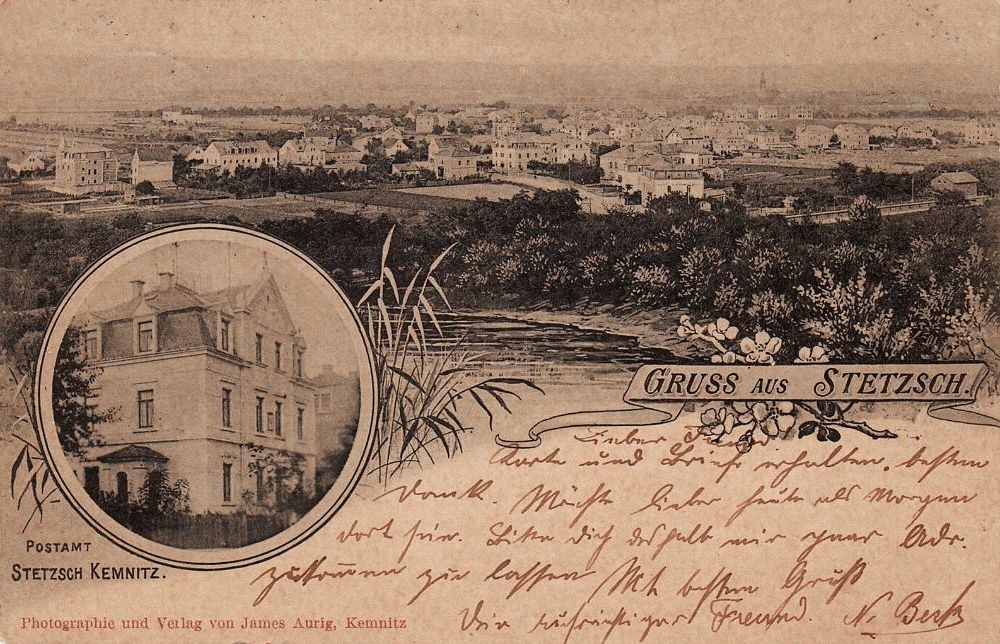 GRUSS AUS STETZSCH.
Lieber
Karte und Brief erhalten, besten
Dank. Möchte lieber heute als Morgen
dort sein. Bitte dich deshalb mir paar Adr.
zukommen zu lassen Mit besten Gruß
Dein aufrichtiger Freund. N. Beck
POSTAMT
STETZSCH KEMNITZ.
Photographie und Verlag von James Aurig, Kemnitz